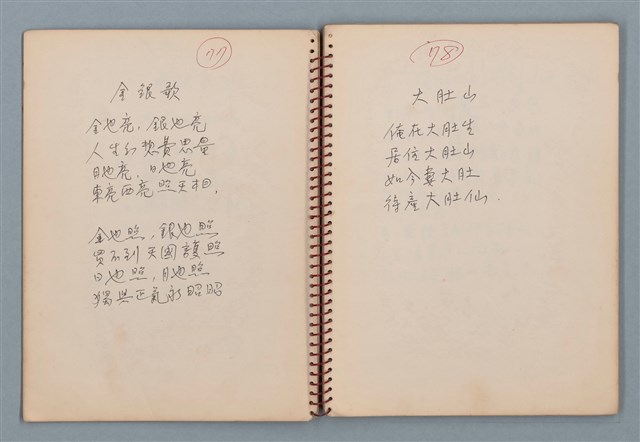 77
金銀歌
金也亮，銀也亮
人生幻想費思量
日也亮，日也亮
東亮西亮照天相．
金也照，銀也照
買不到天國護照
日也照，月也照
獨具正氣永昭昭
78
大肚山
俺在大肚生
居住大肚山
如今妻大肚
待產大肚仙．